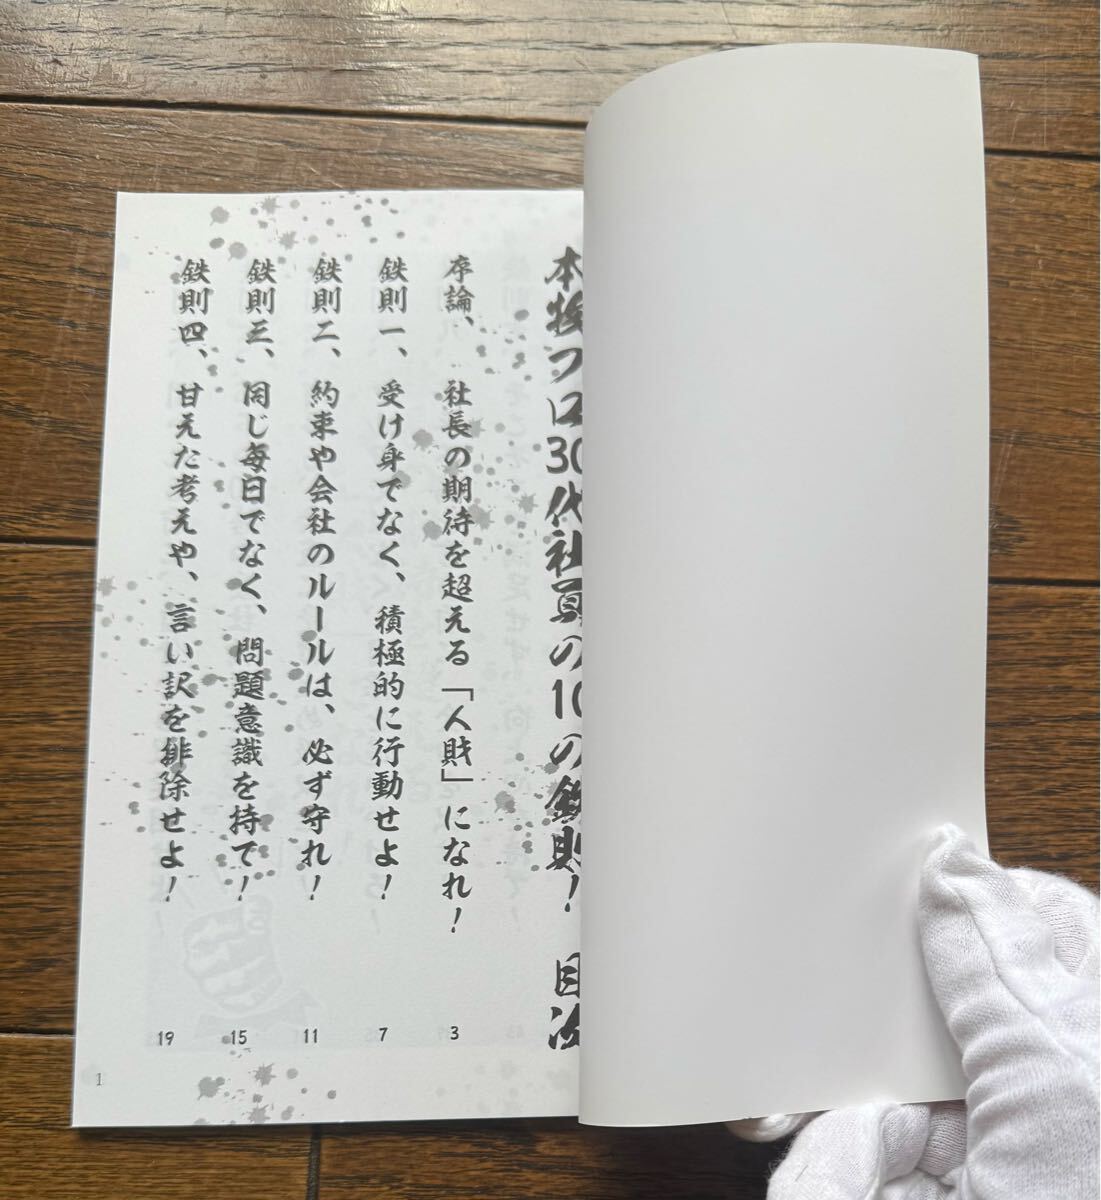 本物プロ30代社員の10の鉄則! 目次
序論、 社長の期待を超える「人財」になれ! 3
鉄則一、 受け身でなく、積極的に行動せよ! 7
鉄則二、 約束や会社のルールは、必ず守れ! 11
鉄則三、 同じ毎日でなく、問題意識を持て! 15
鉄則四、 甘えた考えや、言い訳を排除せよ! 19
1